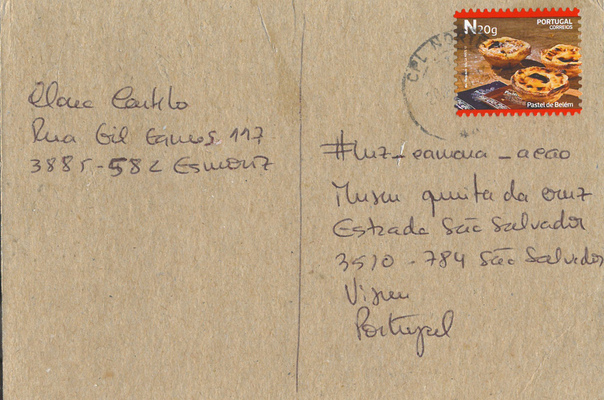 Clara Castilo
Rua Gil Eanes 117
3885-582 Esmoriz
N20g
PORTUGAL
CORREIOS
Pastel de Belém
CPL NO
#luz_camara_acao
Museu quinta da cruz
Estrada São Salvador
3510-784 São Salvador
Viseu
Portugal